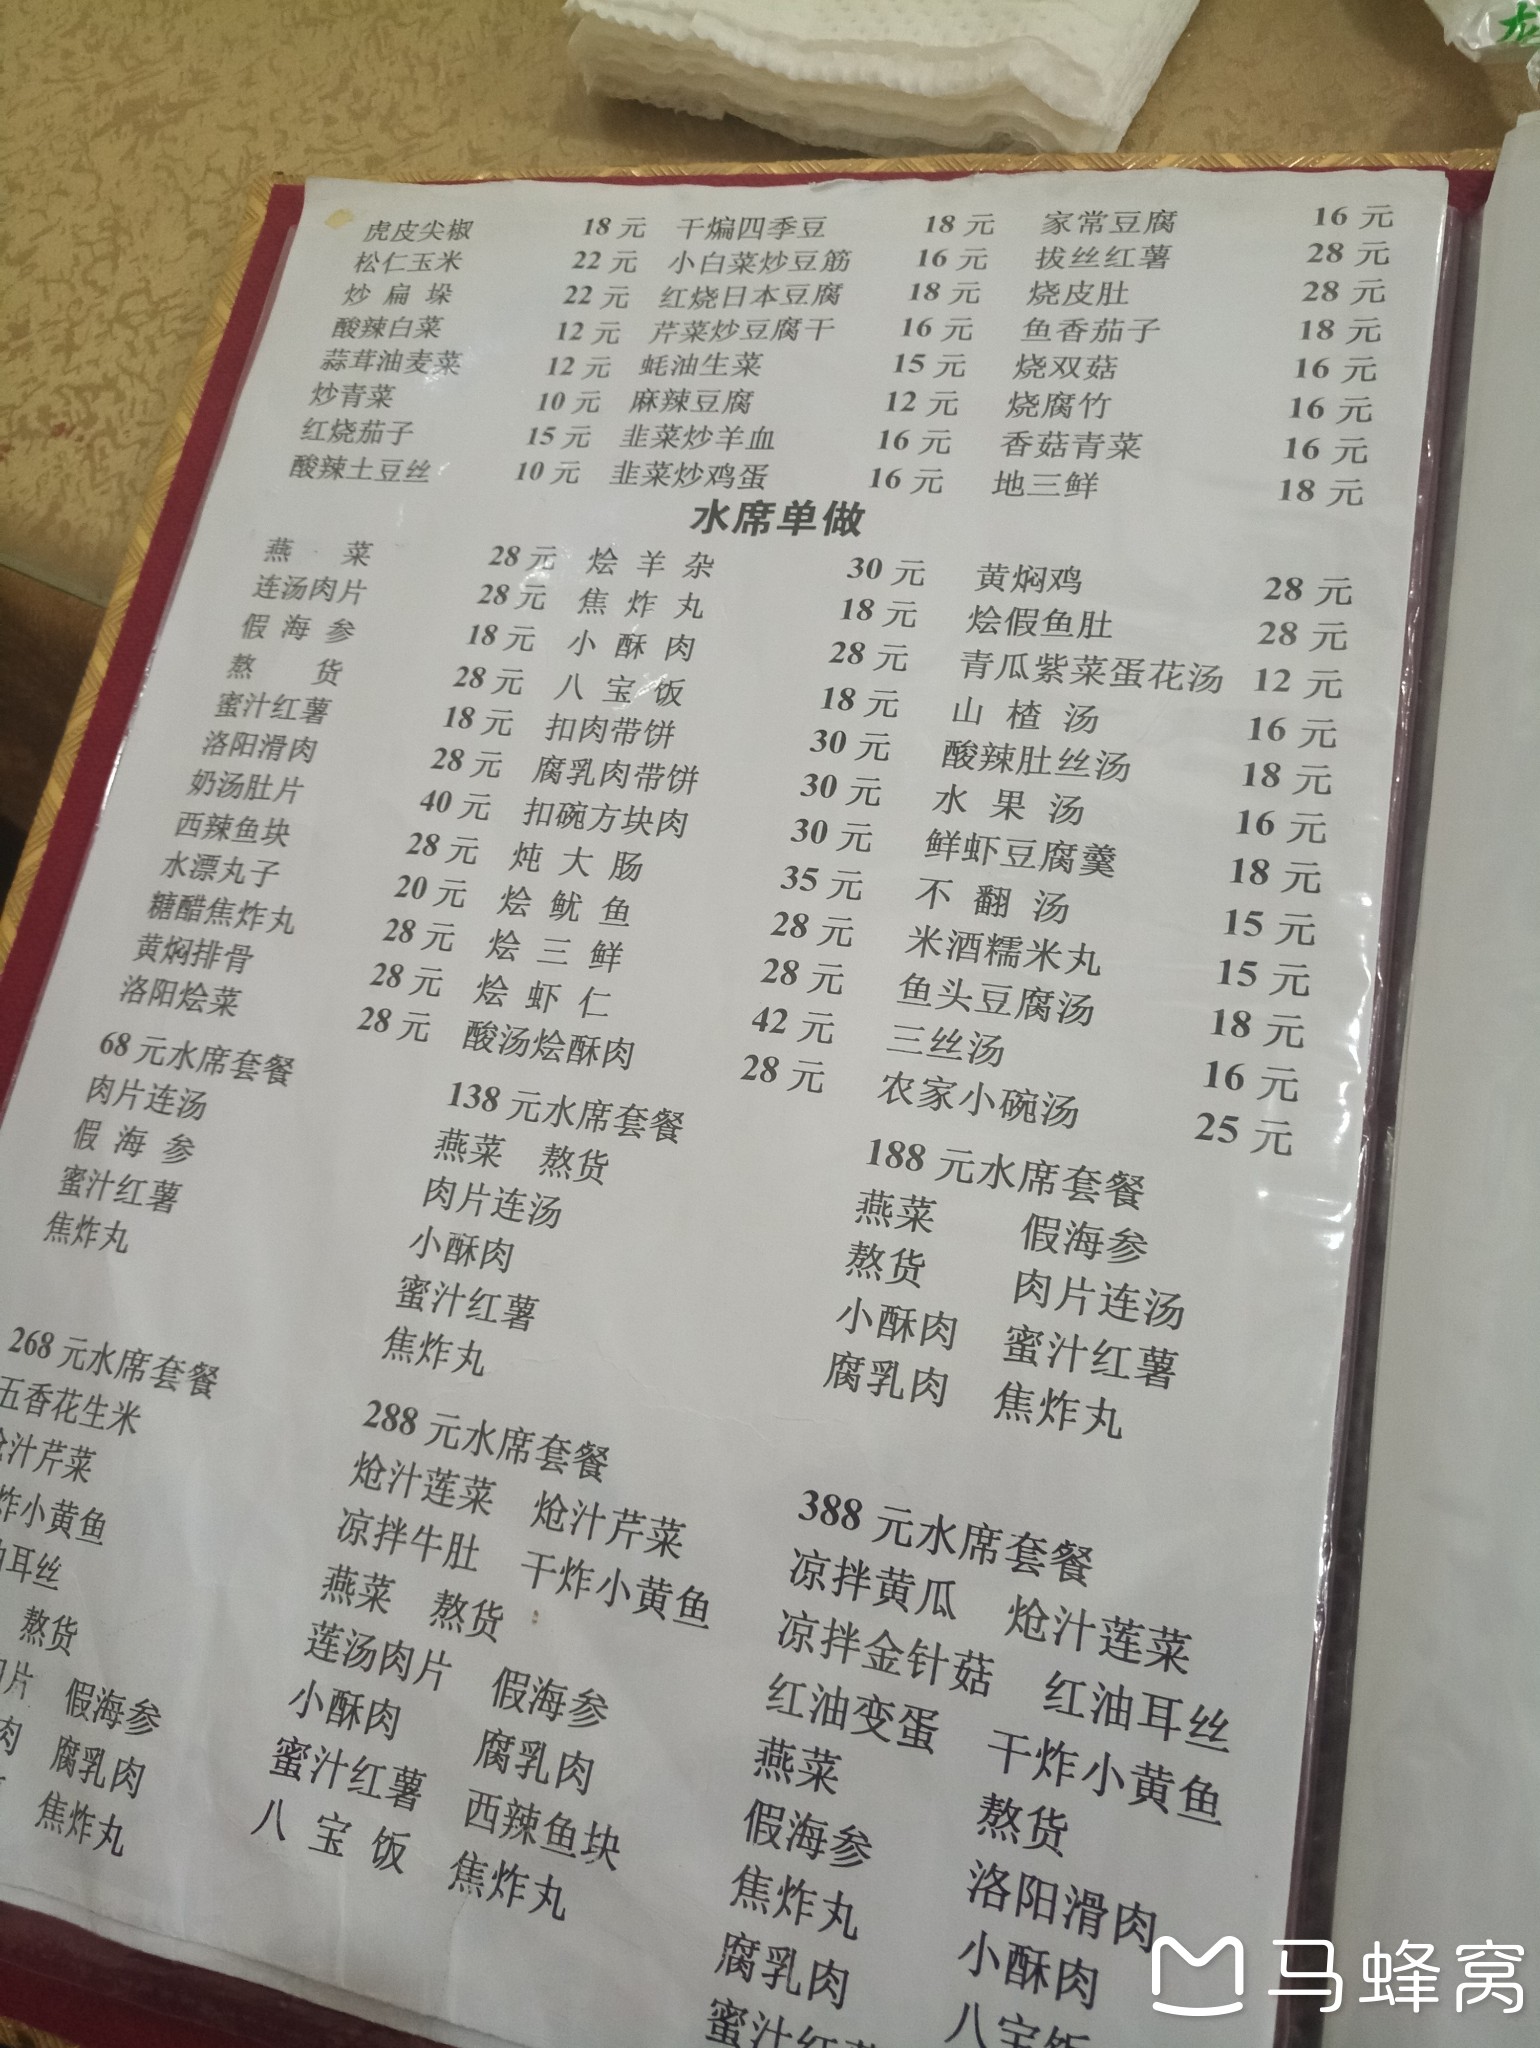 虎皮尖椒 18元 干煸四季豆 18元 家常豆腐 16元
松仁玉米 22元 小白菜炒豆筋 16元 拔丝红薯 28元
炒扁垛 22元 红烧日本豆腐 18元 烧皮肚 28元
酸辣白菜 12元 芹菜炒豆腐干 16元 鱼香茄子 18元
蒜茸油麦菜 12元 蚝油生菜 15元 烧双菇 16元
炒青菜 10元 麻辣豆腐 12元 烧腐竹 16元
红烧茄子 15元 韭菜炒羊血 16元 香菇青菜 16元
酸辣土豆丝 10元 韭菜炒鸡蛋 16元 地三鲜 18元
水席单做
燕菜 28元 烩羊杂 30元 黄焖鸡 28元
连汤肉片 28元 焦炸丸 18元 烩假鱼肚 28元
假海参 18元 小酥肉 28元 青瓜紫菜蛋花汤 12元
熬货 28元 八宝饭 18元 山楂汤 16元
蜜汁红薯 18元 扣肉带饼 30元 酸辣肚丝汤 18元
洛阳滑肉 28元 腐乳肉带饼 30元 水果汤 16元
奶汤肚片 40元 扣碗方块肉 30元 鲜虾豆腐羹 18元
西辣鱼块 28元 炖大肠 35元 不翻汤 15元
水漂丸子 20元 烩鱿鱼 28元 米酒糯米丸 15元
糖醋焦炸丸 28元 烩三鲜 28元 鱼头豆腐汤 18元
黄焖排骨 28元 烩虾仁 42元 三丝汤 16元
洛阳烩菜 28元 酸汤烩酥肉 28元 农家小碗汤 25元
68元水席套餐
肉片连汤
假海参
蜜汁红薯
焦炸丸
138元水席套餐
燕菜 熬货
肉片连汤
小酥肉
蜜汁红薯
焦炸丸
188元水席套餐
燕菜 假海参
熬货 肉片连汤
小酥肉 蜜汁红薯
腐乳肉 焦炸丸
268元水席套餐
五香花生米
汁芹菜
炸小黄鱼
耳丝
熬货
片 假海参
肉 腐乳肉
焦炸丸
288元水席套餐
炝汁莲菜 炝汁芹菜
凉拌牛肚 干炸小黄鱼
燕菜 熬货
莲汤肉片 假海参
小酥肉 腐乳肉
蜜汁红薯 西辣鱼块
八宝饭 焦炸丸
388元水席套餐
凉拌黄瓜 炝汁莲菜
凉拌金针菇 红油耳丝
红油变蛋 干炸小黄鱼
燕菜 熬货
假海参 洛阳滑肉
焦炸丸 小酥肉
腐乳肉 八宝饭
蜜汁红薯
马蜂窝